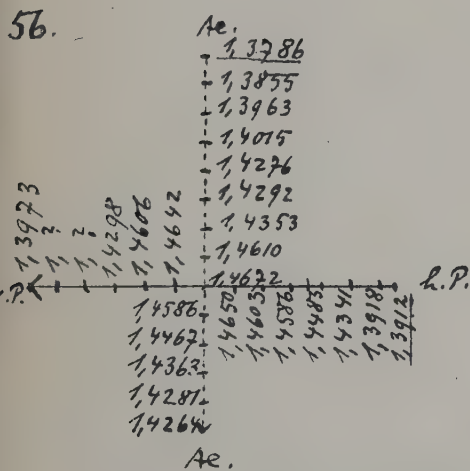 56.
Ae.
1,3786
1,3855
1,3963
1,4015
1,4276
1,4292
1,4353
1,4610
1,4672
1,3973
1, ?
1, ?
1,4298
1,4606
1,4642
.P.
h.P.
1,4650
1,4603
1,4586
1,4483
1,4341
1,3918
1,3912
1,4586
1,4467
1,4363
1,4281
1,4264
Ae.